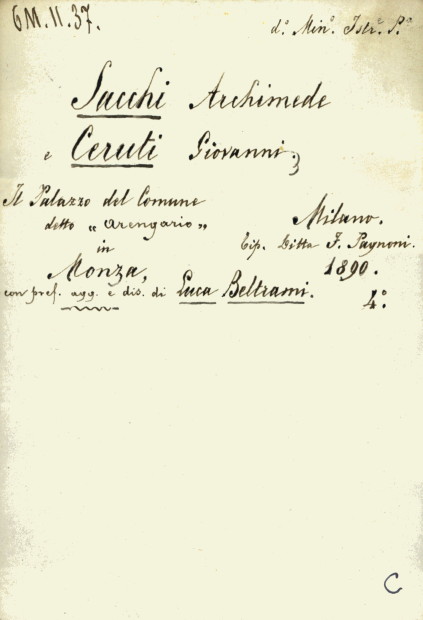 6M.II.37.
d.° Min.° Istr.e P.a
Sacchi Archimede
e Ceruti Giovanni;
Il Palazzo del Comune
detto „ arengario „
in
Monza,
con pref. agg. e dis. di Luca Beltrami.
Milano.
Tip. Ditta F. Pagnoni.
1890.
4.°
C